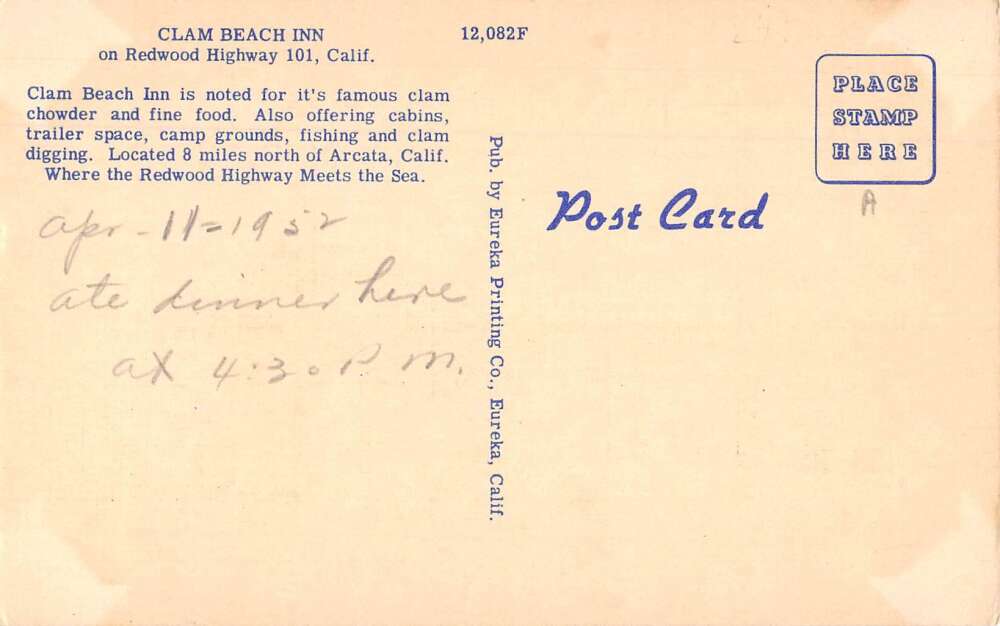 CLAM BEACH INN
on Redwood Highway 101, Calif.
12,082F
Clam Beach Inn is noted for it's famous clam
chowder and fine food. Also offering cabins,
trailer space, camp grounds, fishing and clam
digging. Located 8 miles north of Arcata, Calif.
Where the Redwood Highway Meets the Sea.
apr - 11 = 1952
ate dinner here
at 4:30 P. M.
Pub. by Eureka Printing Co., Eureka, Calif.
Post Card
PLACE
STAMP
HERE
A